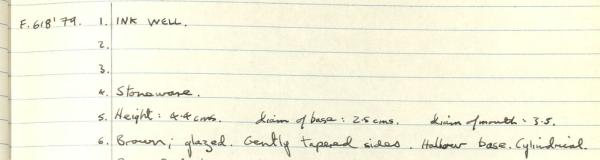 F.618'79. 1. INK WELL.
2.
3.
4. Stoneware.
5. Height: 4.4 cms. diam of base: 2.5 cms. diam of mouth: 3.5.
6. Brown; glazed. Gently tapered sides. Hollow base. Cylindrical.